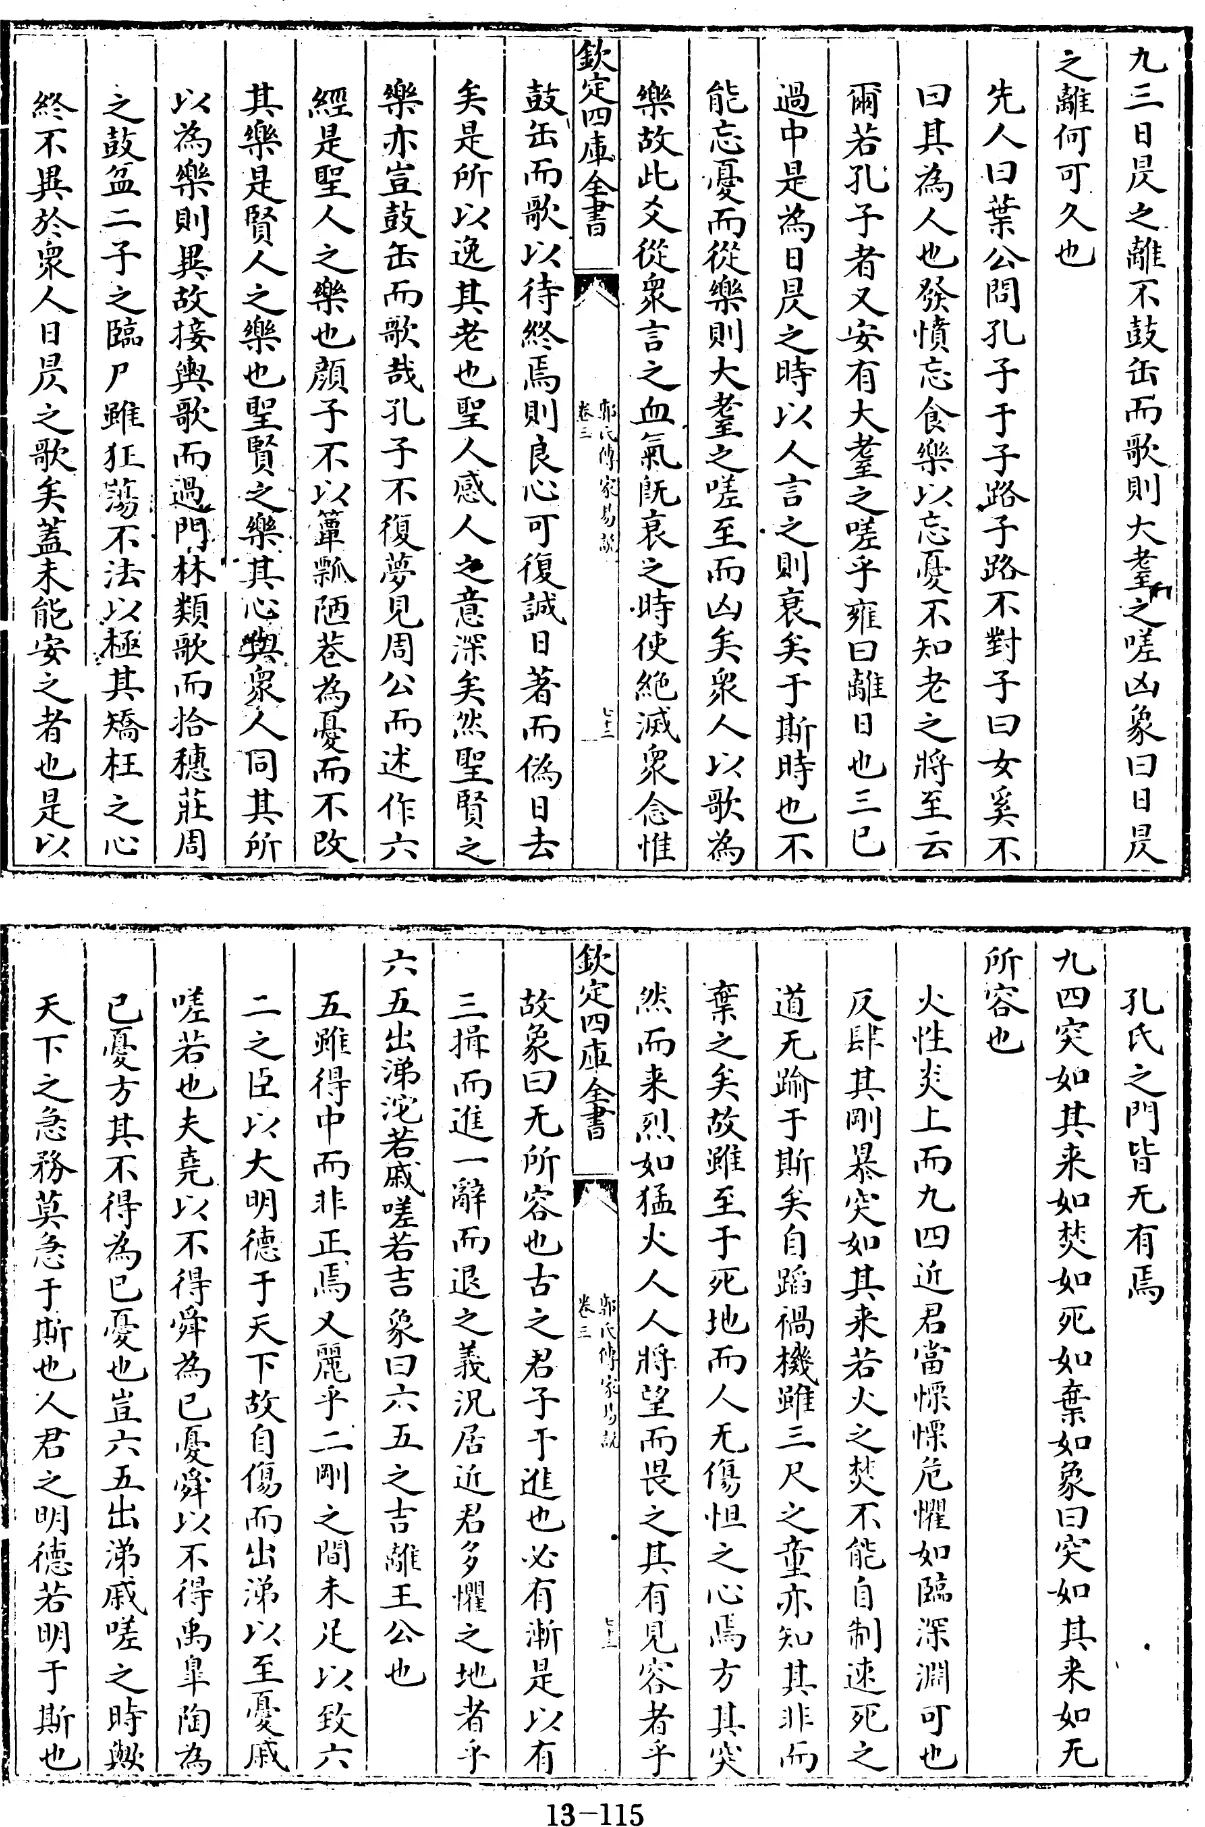 九三日昃之離不鼓缶而歌則大耋之嗟凶象曰日昃
之離何可久也
先人曰葉公問孔子于子路子路不對子曰女奚不
曰其為人也發憤忘食樂以忘憂不知老之將至云
爾若孔子者又安有大耋之嗟乎雍曰離日也三已
過中是為日昃之時以人言之則衰矣于斯時也不
能忘憂而從樂則大耋之嗟至而凶矣衆人以歌為
樂故此爻從衆言之血氣旣衰之時使絶滅衆念惟
欽定四庫全書
郭氏傳家易說
卷三
七十二
鼓缶而歌以待終焉則良心可復誠日著而偽日去
矣是所以逸其老也聖人感人之意深矣然聖賢之
樂亦豈鼓缶而歌哉孔子不復夢見周公而述作六
經是聖人之樂也顔子不以簞瓢陋巷為憂而不改
其樂是賢人之樂也聖賢之樂其心與衆人同其所
以為樂則異故接輿歌而過門林類歌而拾穗莊周
之鼓盆二子之臨尸雖狂蕩不法以極其矯枉之心
終不異於衆人日昃之歌矣蓋未能安之者也是以
孔氏之門皆无有焉
九四突如其来如焚如死如棄如象曰突如其来如无
所容也
火性炎上而九四近君當慄慄危懼如臨深淵可也
反肆其剛暴突如其来若火之焚不能自制速死之
道无踰于斯矣自蹈禍機雖三尺之童亦知其非而
棄之矣故雖至于死地而人无傷怛之心焉方其突
然而来烈如猛火人人將望而畏之其有見容者乎
欽定四庫全書
郭氏傳家易說
卷三
故象曰无所容也古之君子于進也必有漸是以有
三揖而進一辭而退之義況居近君多懼之地者乎
六五出涕沱若戚嗟若吉象曰六五之吉離王公也
五雖得中而非正焉又麗乎二剛之間未足以致六
二之臣以大明德于天下故自傷而出涕以至憂戚
嗟若也夫堯以不得舜為已憂舜以不得禹臯陶為
已憂方其不得為已憂也豈六五出涕戚嗟之時歟
天下之急務莫急于斯也人君之明德若明于斯也
13-115